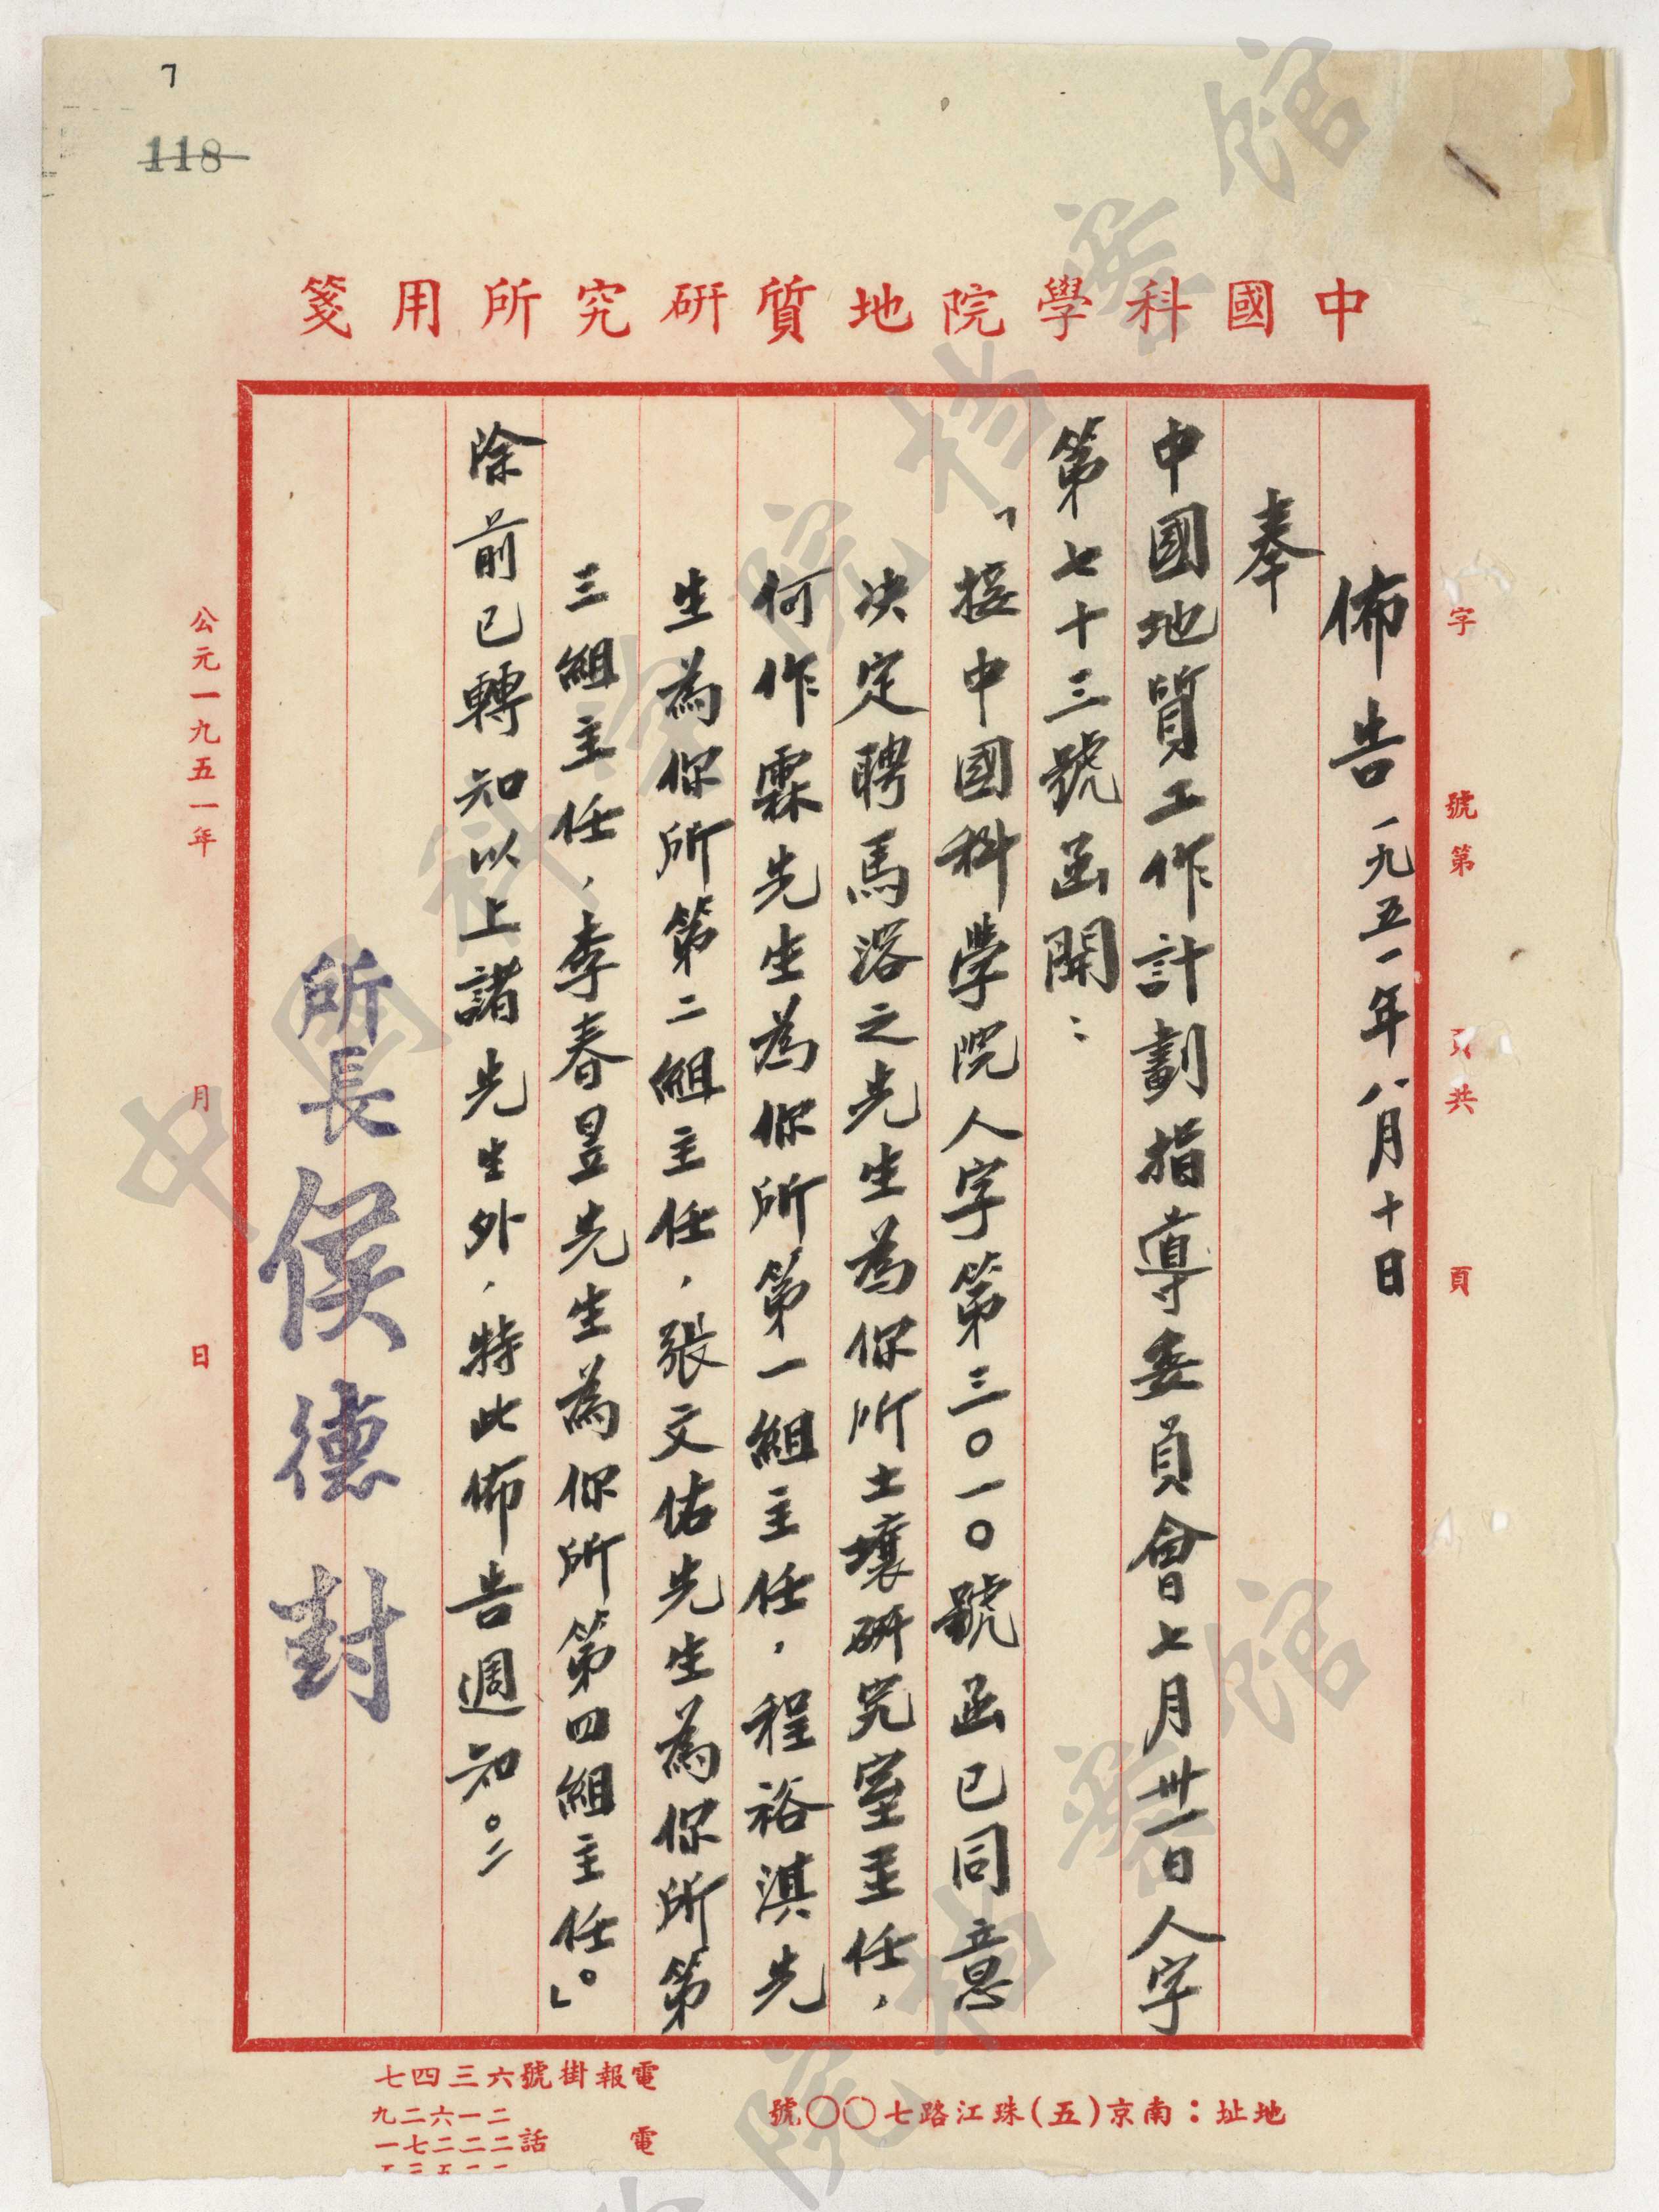 7
118
中國科學院地質研究所用箋
字 號第 頁共 頁
佈告 一九五一年八月十日
奉
中國地質工作計劃指導委員會七月卅一日人字
第七十三號函開：
「接中國科學院人字第三〇一〇號函已同意
決定聘馬溶之先生為你所土壤研究室主任，
何作霖先生為你所第一組主任，程裕淇先
生為你所第二組主任，張文佑先生為你所第
三組主任，李春昱先生為你所第四組主任。」
除前已轉知以上諸先生外，特此佈告週知。
所長 侯德封
公元一九五一年 月 日
地址：南京(五)珠江路七〇〇號
電報掛號六三四七
電話
二一六二九
二二二七一
中国科学院档案馆